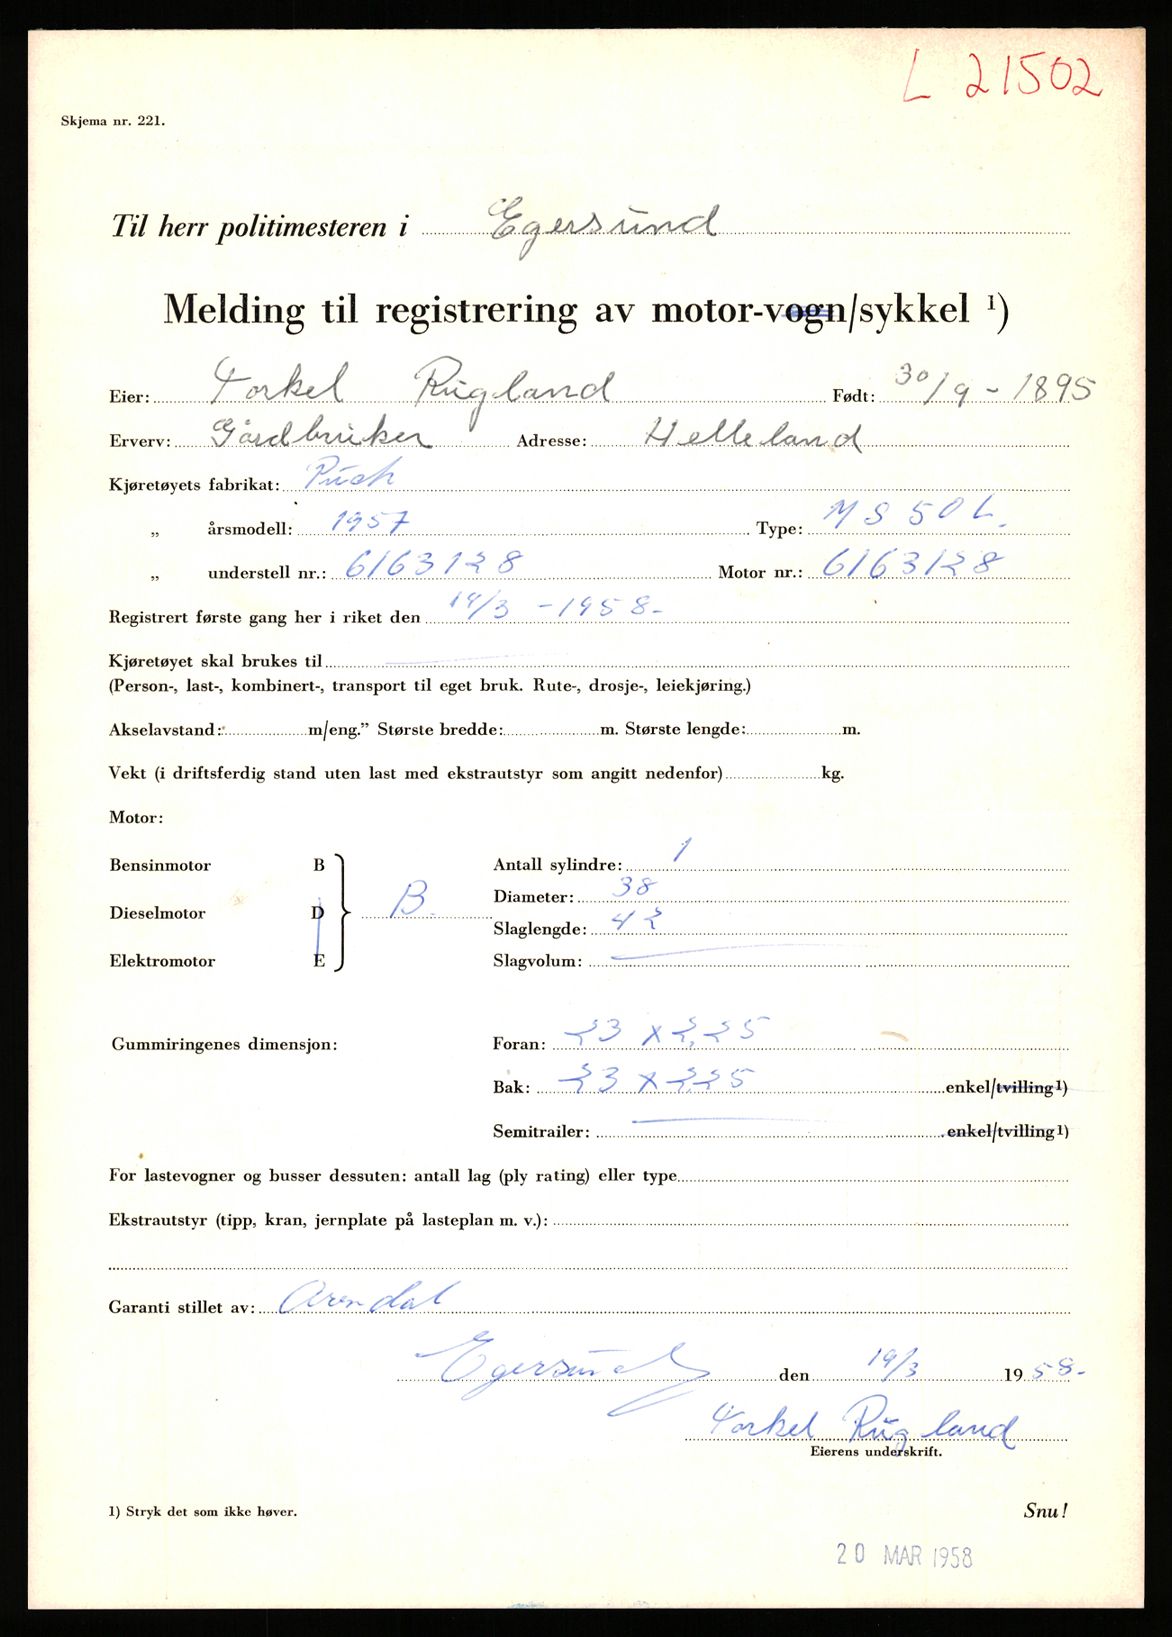 L 21502
Skjema nr. 221.
Til herr politimesteren i Egersund
Melding til registrering av motor-vogn/sykkel ¹)
Eier: Torkel Rugland Født: 30/9 - 1895
Erverv: Gårdbruker Adresse: Helleland
Kjøretøyets fabrikat: Puch
„ årsmodell: 1957 Type: MS 50 L.
„ understell nr.: 6163128 Motor nr.: 6163128
Registrert første gang her i riket den 19/3 - 1958-
Kjøretøyet skal brukes til
(Person-, last-, kombinert-, transport til eget bruk. Rute-, drosje-, leiekjøring.)
Akselavstand: m/eng.” Største bredde: m. Største lengde: m.
Vekt (i driftsferdig stand uten last med ekstrautstyr som angitt nedenfor) kg.
Motor:
Bensinmotor B Antall sylindre: 1
Diameter: 38
Dieselmotor D B. Slaglengde: 42
Elektromotor E Slagvolum:
Gummiringenes dimensjon: Foran: 23 x 2,25
Bak: 23 x 2,25 enkel/tvilling ¹)
Semitrailer: enkel/tvilling ¹)
For lastevogner og busser dessuten: antall lag (ply rating) eller type
Ekstrautstyr (tipp, kran, jernplate på lasteplan m. v.):
Garanti stillet av: Arendal
Egersund den 19/3 1958-
Torkel Rugland
Eierens underskrift.
1) Stryk det som ikke høver. Snu!
20 MAR 1958